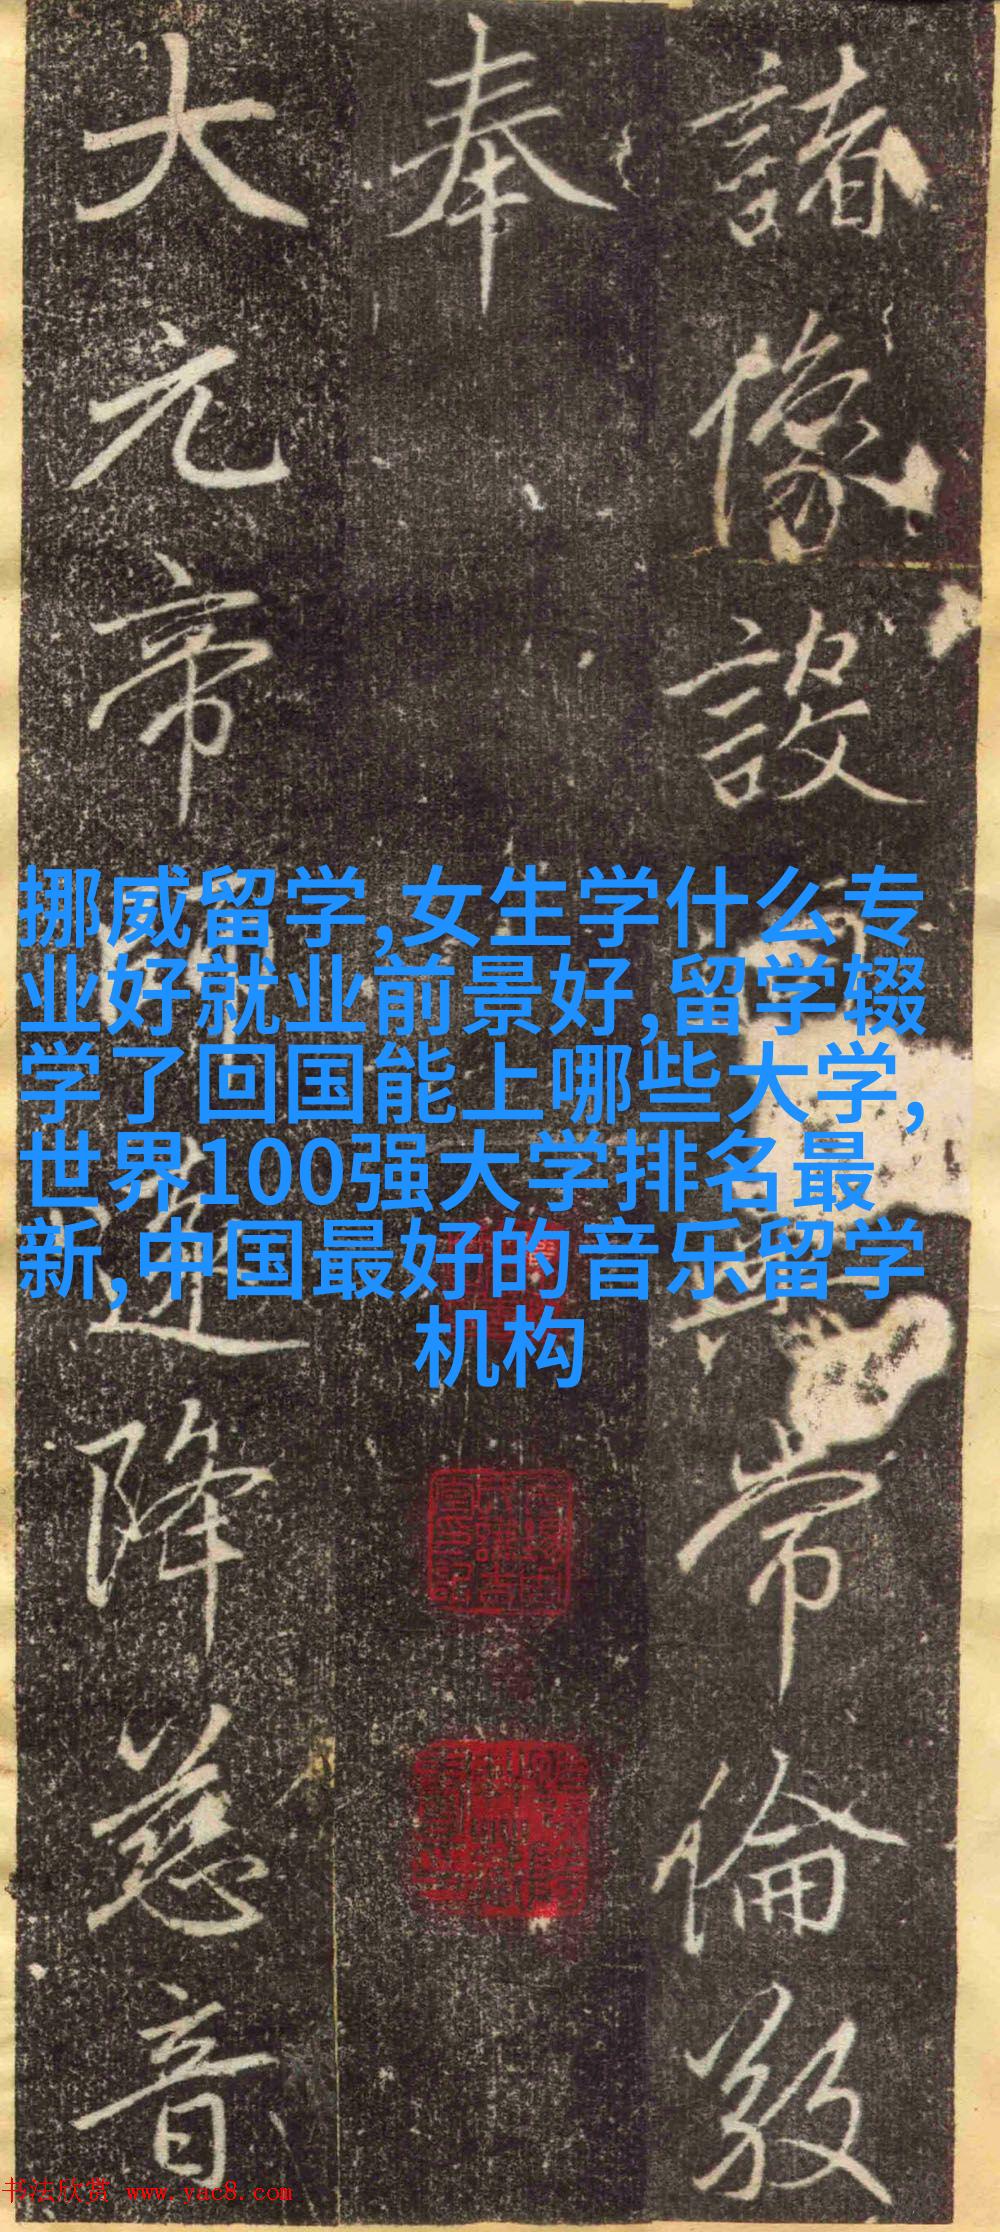 諸像設
常倫敬
奉
大元帝
降慈音
挪威留学,女生学什么专
业好就业前景好,留学辍
学了回国能上哪些大学,
世界100强大学排名最
新,中国最好的音乐留学
机构
书法欣赏 www.yac8.com